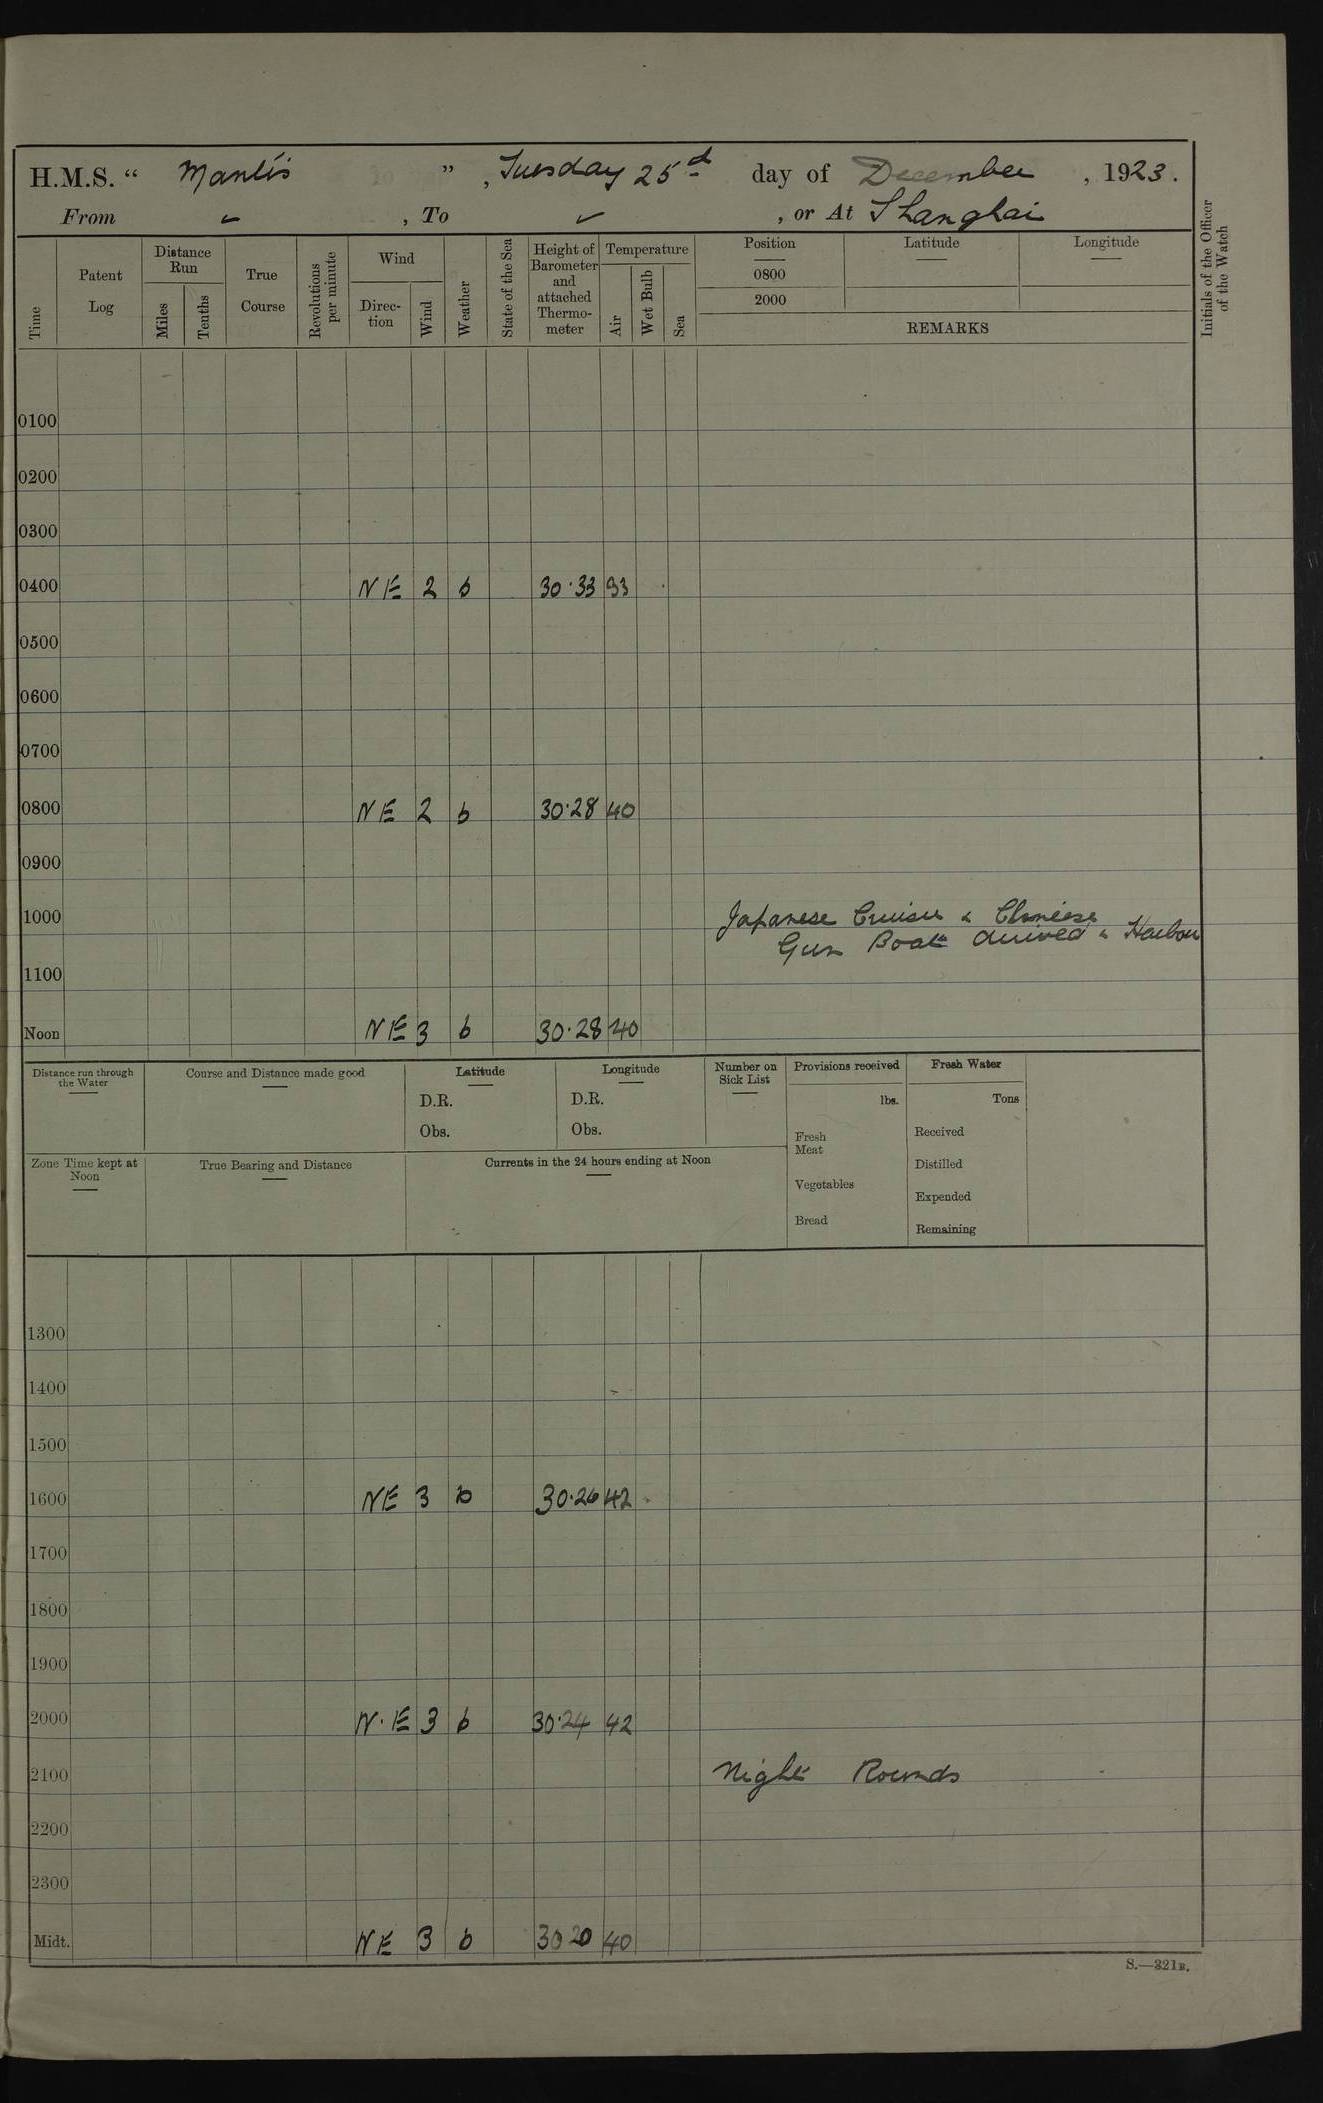 H.M.S. “ Mantis ” , Tuesday 25d day of December , 1923.
From ✓ , To ✓ , or At Shanghai
Time
Patent Log
Distance Run
Miles
Tenths
True Course
Revolutions per minute
Wind
Direc-tion
Wind
Weather
State of the Sea
Height of Barometer and attached Thermo-meter
Temperature
Air
Wet Bulb
Sea
Position
0800
2000
Latitude
Longitude
REMARKS
Initials of the Officer of the Watch
0100
0200
0300
0400 NE 2 b 30.33 33
0500
0600
0700
0800 NE 2 b 30.28 40
0900
1000 Japanese Cruiser & Chinese
Gun Boat arrived in Harbour
1100
Noon NE 3 b 30.28 40
Distance run through the Water
Course and Distance made good
Latitude
D.R.
Obs.
Longitude
D.R.
Obs.
Number on Sick List
Provisions received
lbs.
Fresh Meat
Vegetables
Bread
Fresh Water
Tons
Received
Distilled
Expended
Remaining
Zone Time kept at Noon
True Bearing and Distance
Currents in the 24 hours ending at Noon
1300
1400
1500
1600 NE 3 b 30.26 42
1700
1800
1900
2000 N.E 3 b 30.24 42
2100 Night Rounds
2200
2300
Midt. NE 3 b 30 20 40
S.—321B.